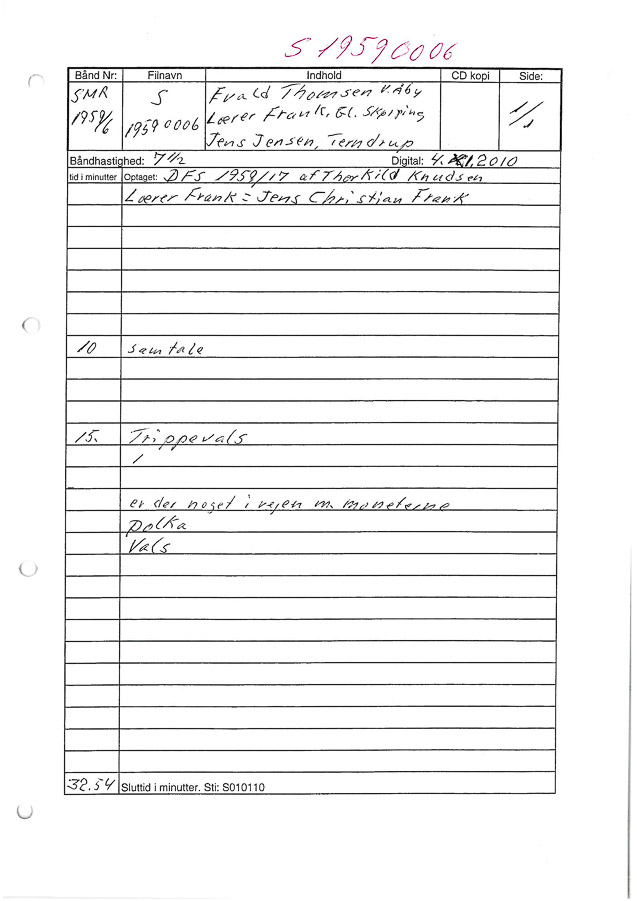 S 19590006
Bånd Nr: Filnavn Indhold CD kopi Side:
SMR S Evald Thomsen V. Åby
1959/6 19590006 Lærer Frank, Gl. Skørping 1/1
Jens Jensen, Terndrup
Båndhastighed: 7 1/2 Digital: 4. 2010
tid i minutter Optaget: DFS 1959/17 af Thorkild Knudsen
Lærer Frank = Jens Christian Frank
10 samtale
15. Trippevals
/
er der noget i vejen m. moneterne
Polka
Vals
32.54 Sluttid i minutter. Sti: S010110